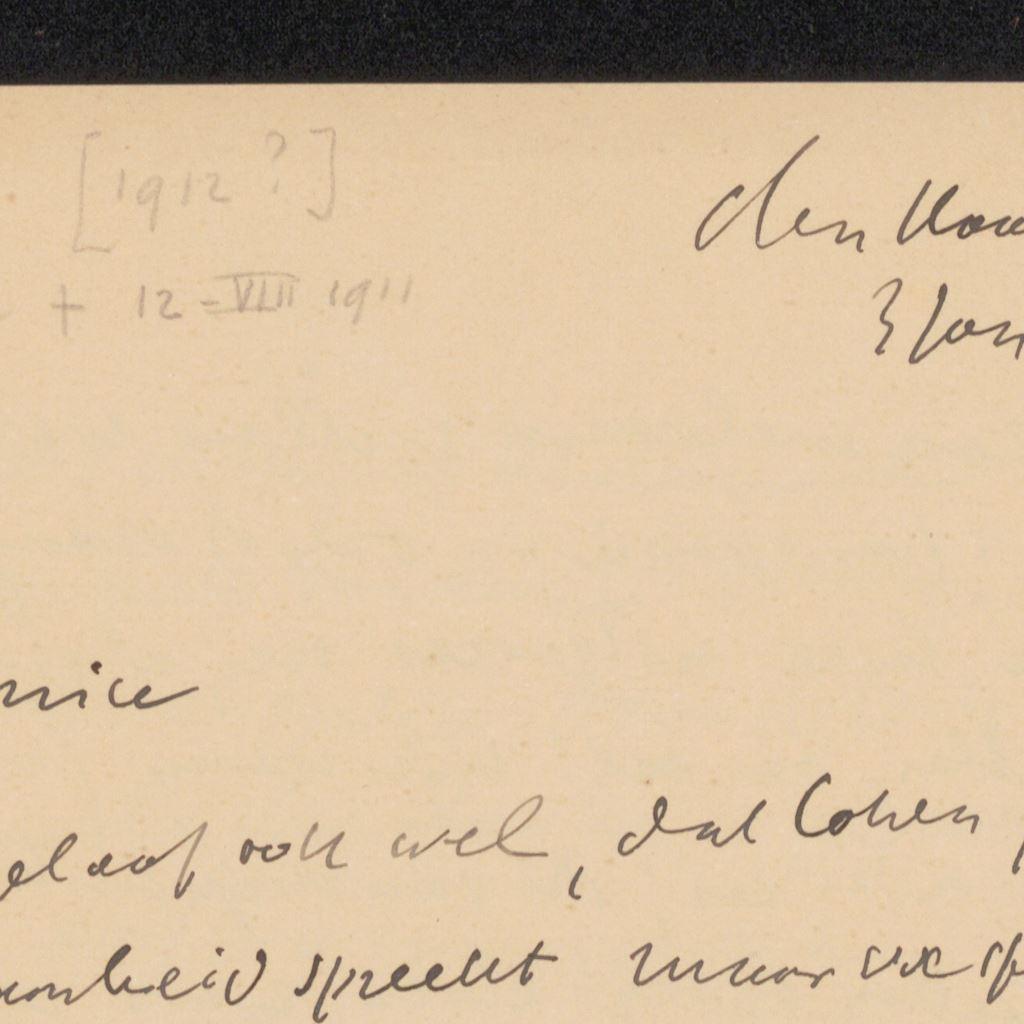 [1912?]
+ 12-VIII 1911
den Haa
3 Jan
nice
gelaof ook wel, dat Cohen
heid spreekt maar